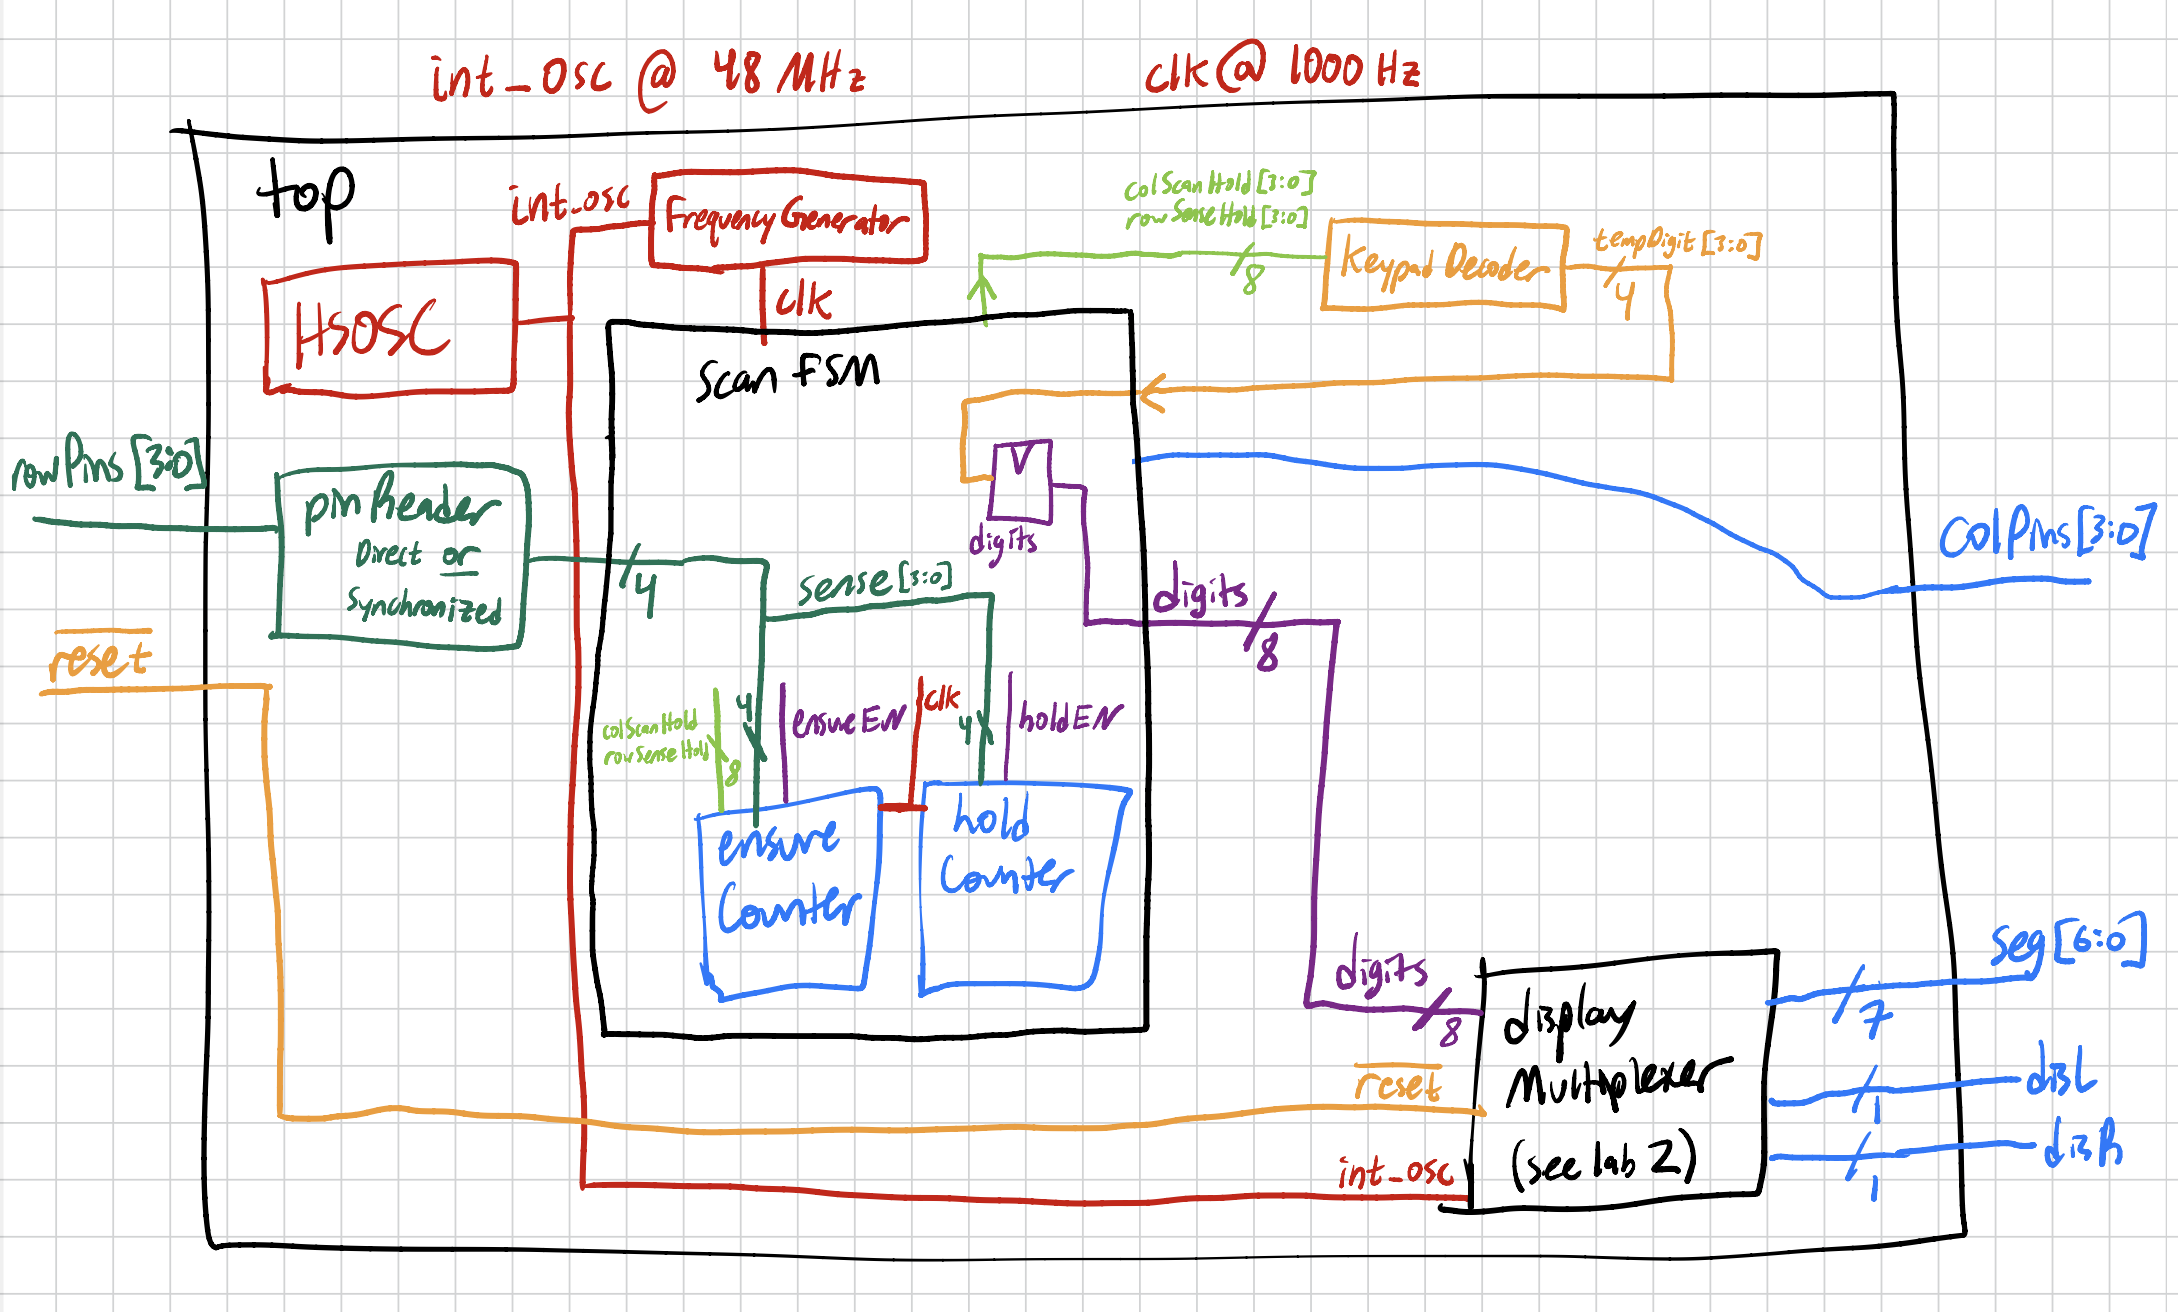 int_osc @ 48 MHz
clk @ 1000 Hz
top
int_osc
Frequency Generator
colScanHold[3:0]
rowSenseHold[3:0]
8
Keypad Decoder
tempDigit[3:0]
4
HSOSC
clk
Scan FSM
rowPins[3:0]
pinReader
Direct or
Synchronized
4
sense[3:0]
digits
digits
8
colPins[3:0]
reset
colScanHold
rowSenseHold
8
4
ensureEN
clk
4
holdEN
ensure
Counter
hold
Counter
digits
8
display
Multiplexer
(see lab 2)
reset
int_osc
seg[6:0]
7
disL
1
disR
1